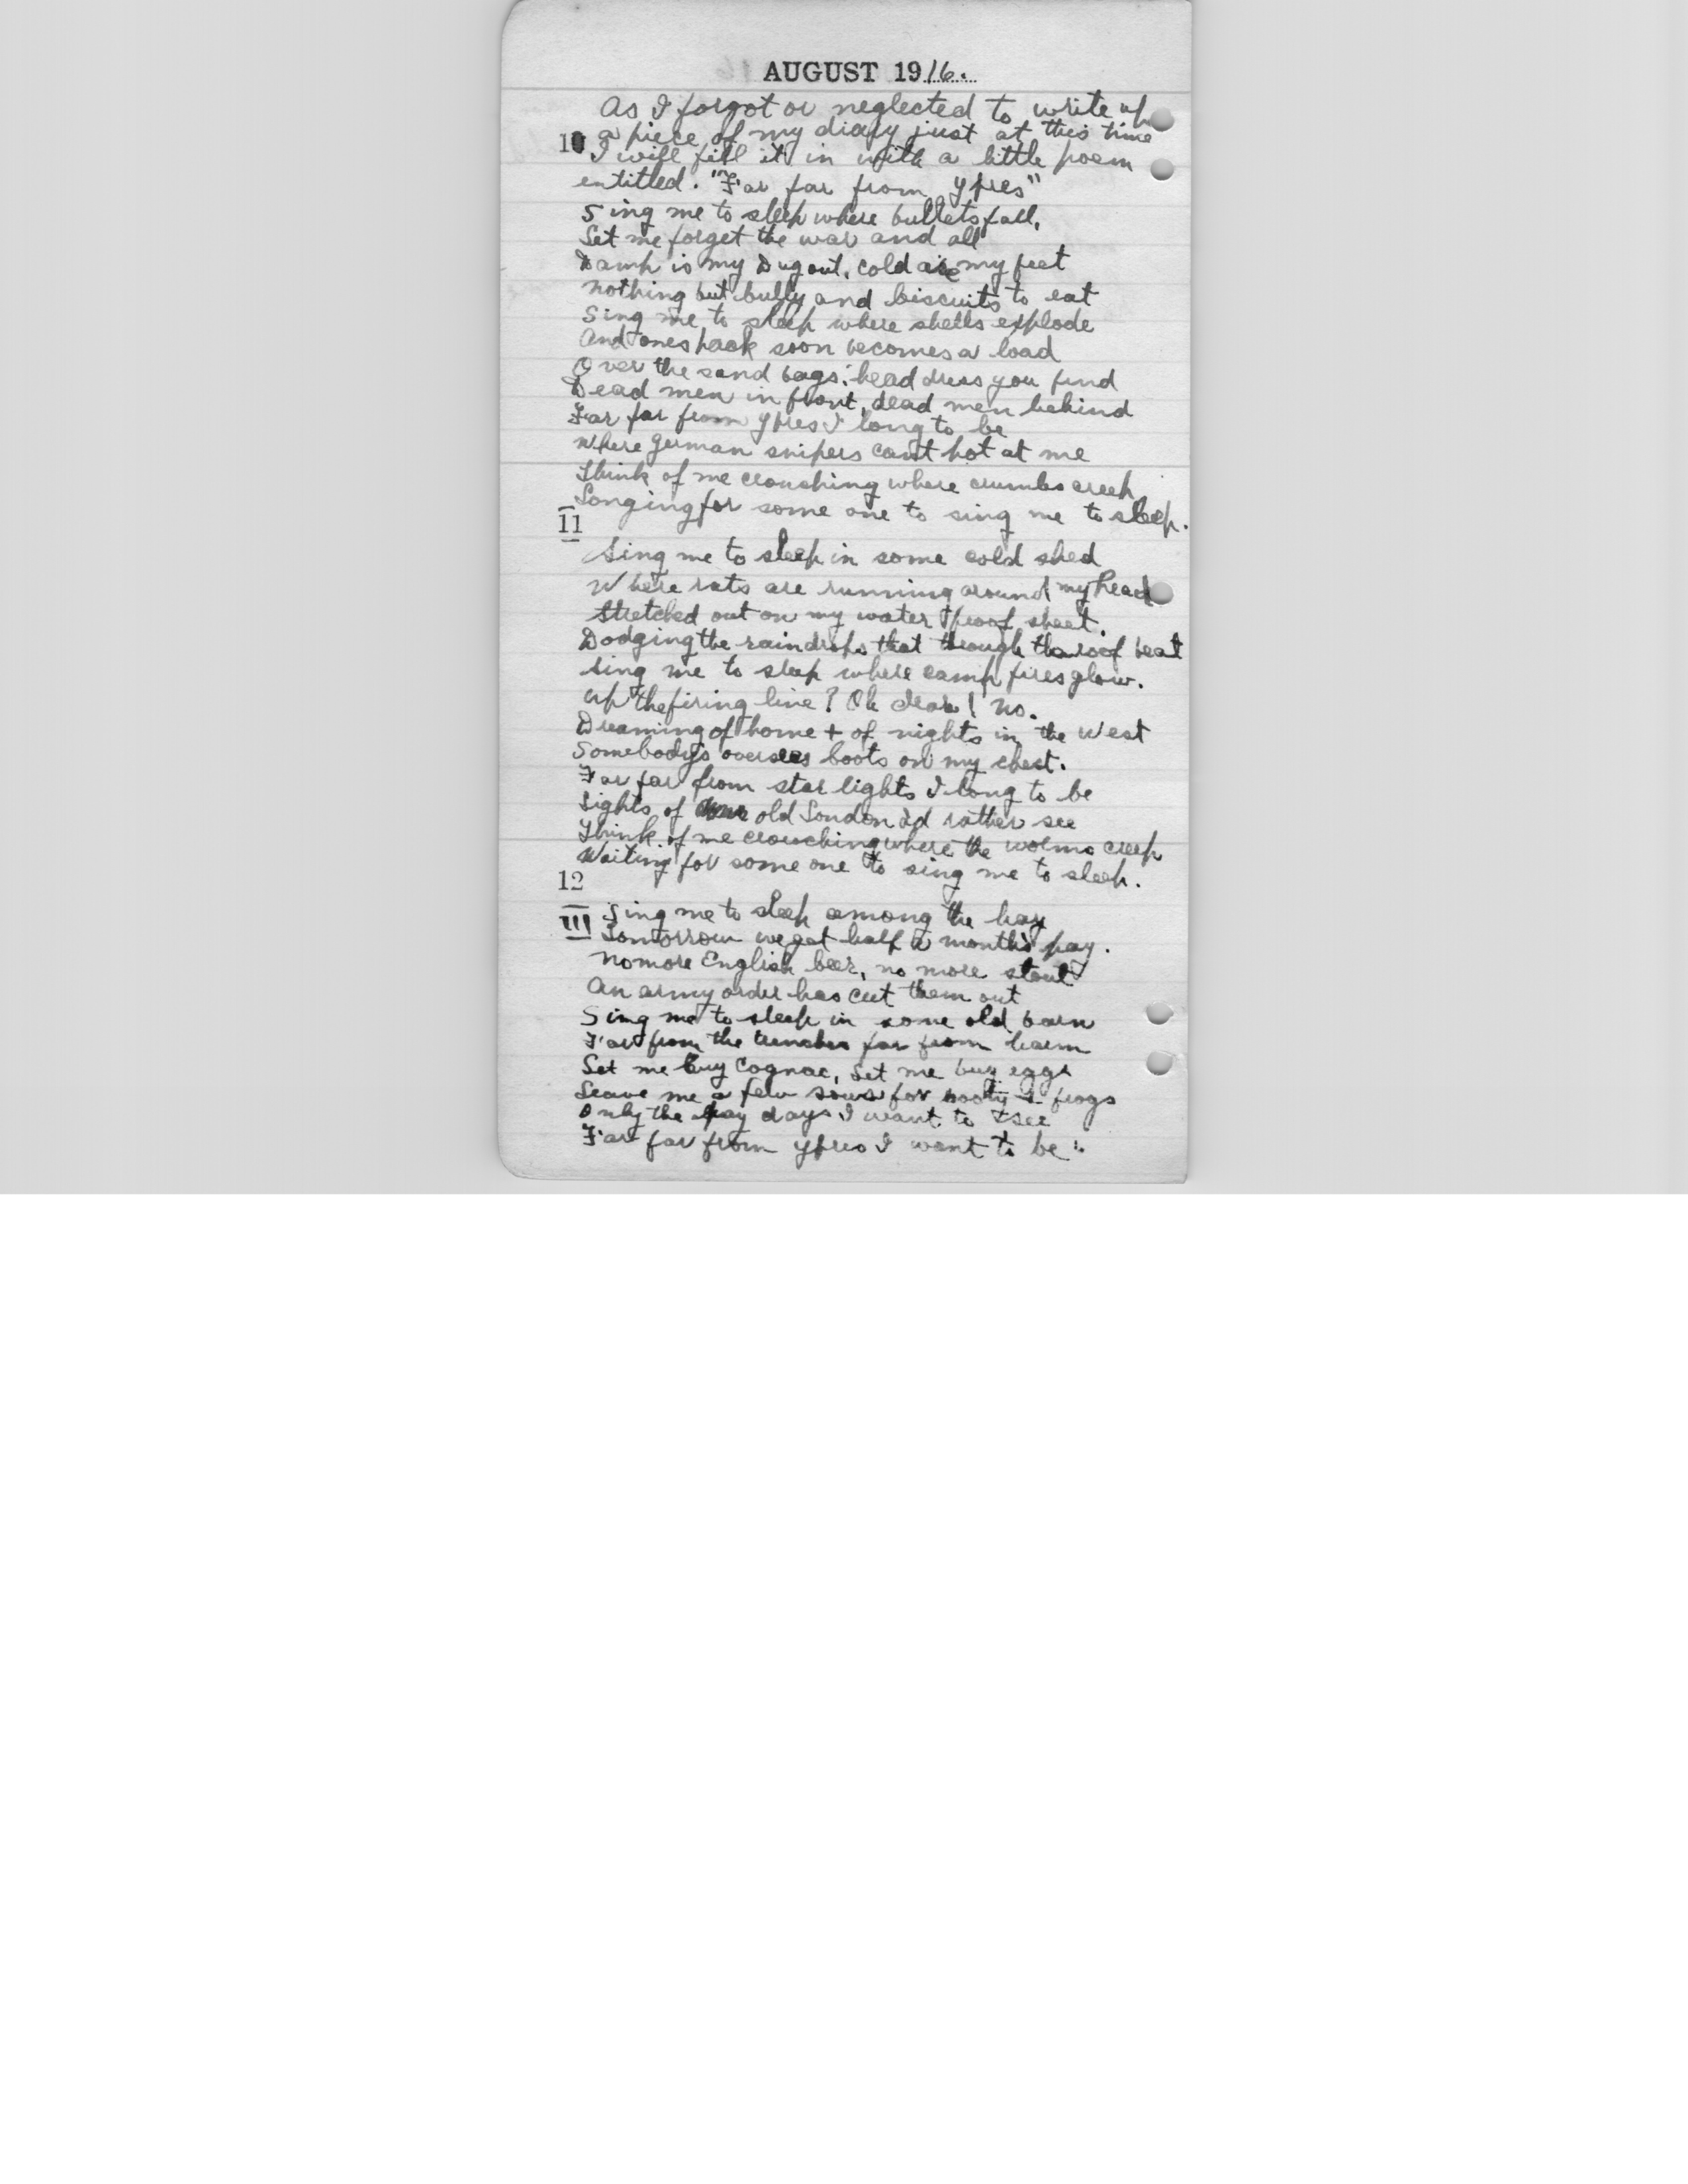 AUGUST 1916.
As I forgot or neglected to write up
10 a piece of my diary just at this time
I will fill it in with a little poem
entitled. "Far far from Ypres"
Sing me to sleep where bullets fall,
Let me forget the war and all
Damp is my Dugout, cold are my feet
Nothing but bully and biscuits to eat
Sing me to sleep where shells explode
And ones pack soon becomes a load
Over the sand bags: head dress you find
Dead men in front, dead men behind
Far far from Ypres I long to be
Where German snipers cant pot at me
Think of me crouching where crumbs creep
Longing for some one to sing me to sleep.
11
Sing me to sleep in some cold shed
Where rats are running around my head
Stretched out on my water proof sheet.
Dodging the raindrops that through the roof beat
Sing me to sleep where camp fires glow.
Up the firing line? Oh dear! no.
Dreaming of home + of nights in the West
Somebody's overseas boots on my chest.
Far far from star lights I long to be
Lights of old London id rather see
Think of me crouching where the worms creep
Waiting for some one to sing me to sleep.
12
III Sing me to sleep among the hay
Tomorrow we get half a month's pay.
No more English beer, no more stout
An army order has cut them out
Sing me to sleep in some old barn
Far from the trenches far from harm
Let me buy Cognac, Let me buy eggs
Leave me a few sous for booty + frogs
Only the pay days I want to see
Far far from Ypres I want to be :.